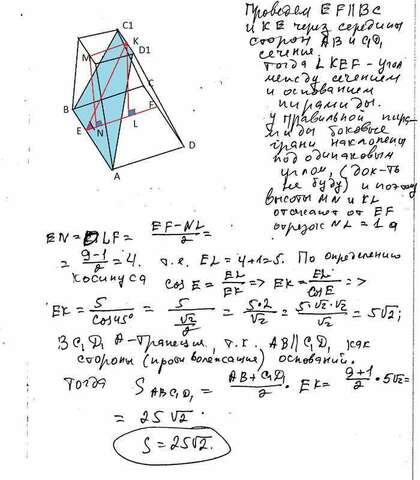 C1
K
M
D1
B
C
E
N
L
F
A
D
Проведем EF∥BC
и KE через середины
сторон AB и C₁D₁
сечение.
Тогда ∠KEF - угол
между сечением
и основанием
пирамиды.
У правильной пира-
миды боковые
грани наклонены
под одинаковым
углом, (док-ть
не буду) и поэтому
высоты MN и KL
отсекают от EF
отрезок NL = 1 а
EN = LF = EF-NL/2 =
= 9-1/2 = 4. т.е. EL = 4+1=5. По определению
косинуса cos E = EL/EK => EK = EL/cos E =>
EK = 5/cos45° = 5/√2/2 = 5·2/√2 = 5·√2·√2/√2 = 5√2;
BC₁D₁A - трапеция, т.к. AB∥C₁D₁ как
стороны (противолежащие) оснований.
Тогда S ABC₁D₁ = AB+C₁D₁/2 · EK = 9+1/2 · 5√2=
= 25√2.
S = 25√2.